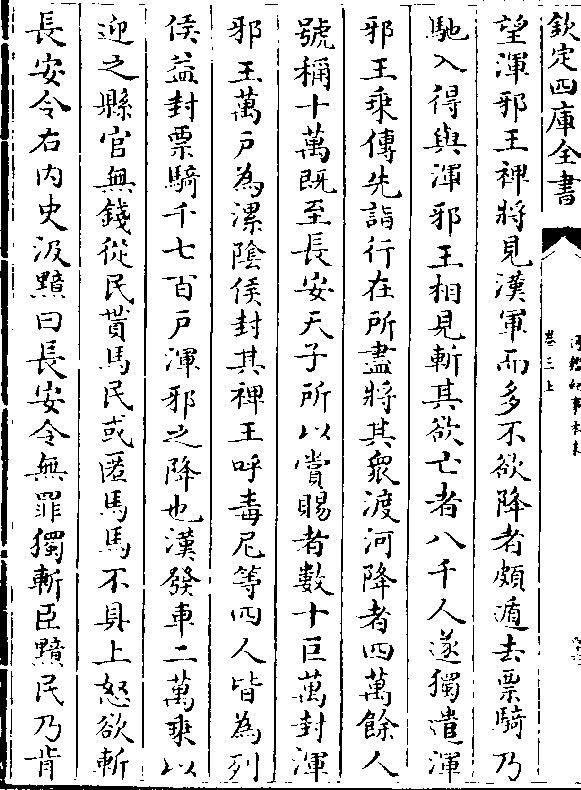 欽定四庫全書
卷三上
望渾邪王裨將見漢軍而多不欲降者頗遁去票騎乃
馳入得與渾邪王相見斬其欲亡者八千人遂獨遣渾
邪王乗傳先詣行在所盡將其衆渡河降者四萬餘人
號稱十萬既至長安天子所以賞賜者數十巨萬封渾
邪王萬戸為漯陰侯封其裨王呼毒尼等四人皆為列
侯益封票騎千七百戸渾邪之降也漢發車二萬乗以
迎之縣官無錢從民貰馬民或匿馬馬不具上怒欲斬
長安令右内史汲黯曰長安令無罪獨斬臣黯民乃肯